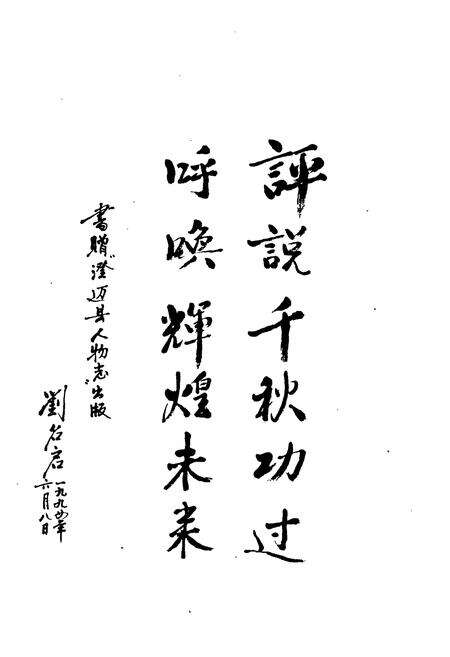 評説千秋功过
呼唤輝煌未来
書贈“澄迈县人物志”出版
劉名启
一九九四年
六月八日